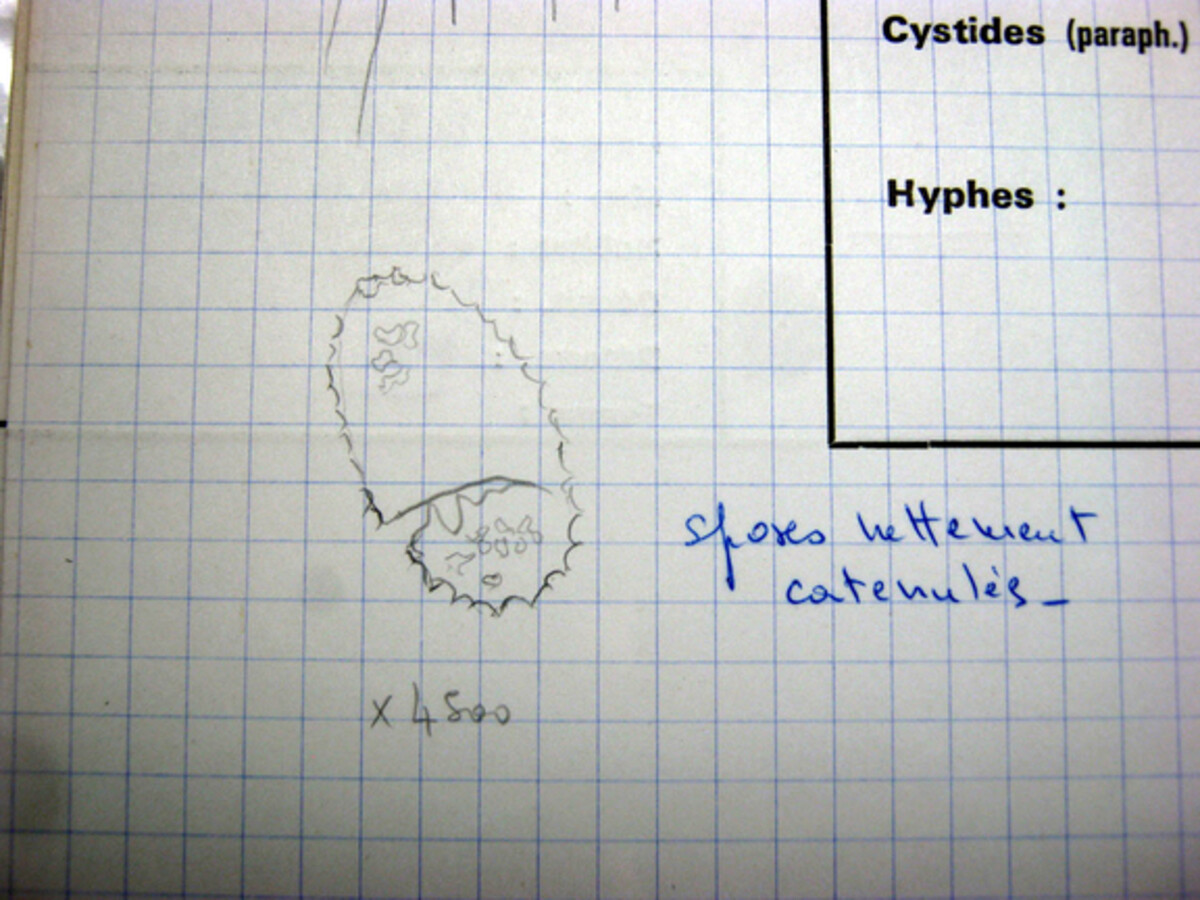 Cystides (paraph.)
Hyphes :
spores nettement
catenulés_
x 4500